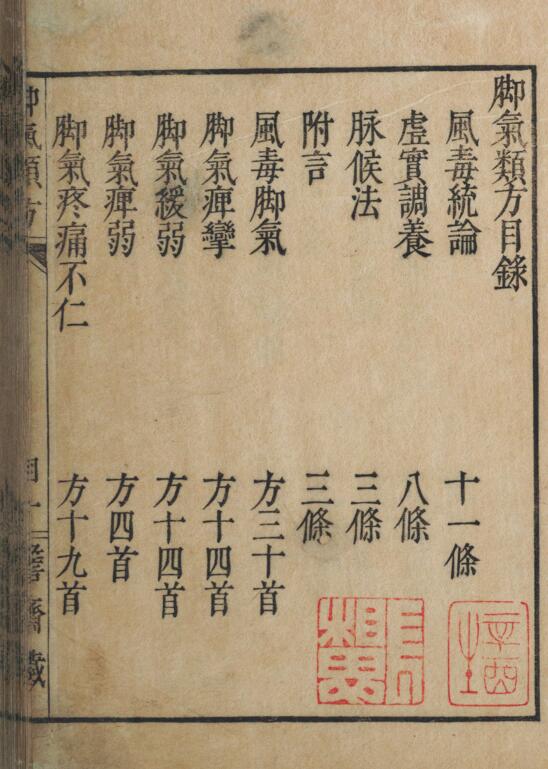 脚氣類方目錄
風毒統論 十一條
虛實調養 八條
脉候法 三條
附言 三條
風毒脚氣 方三十首
脚氣痹攣 方十四首
脚氣緩弱 方十四首
脚氣痹弱 方四首
脚氣疼痛不仁 方十九首
脚氣類方